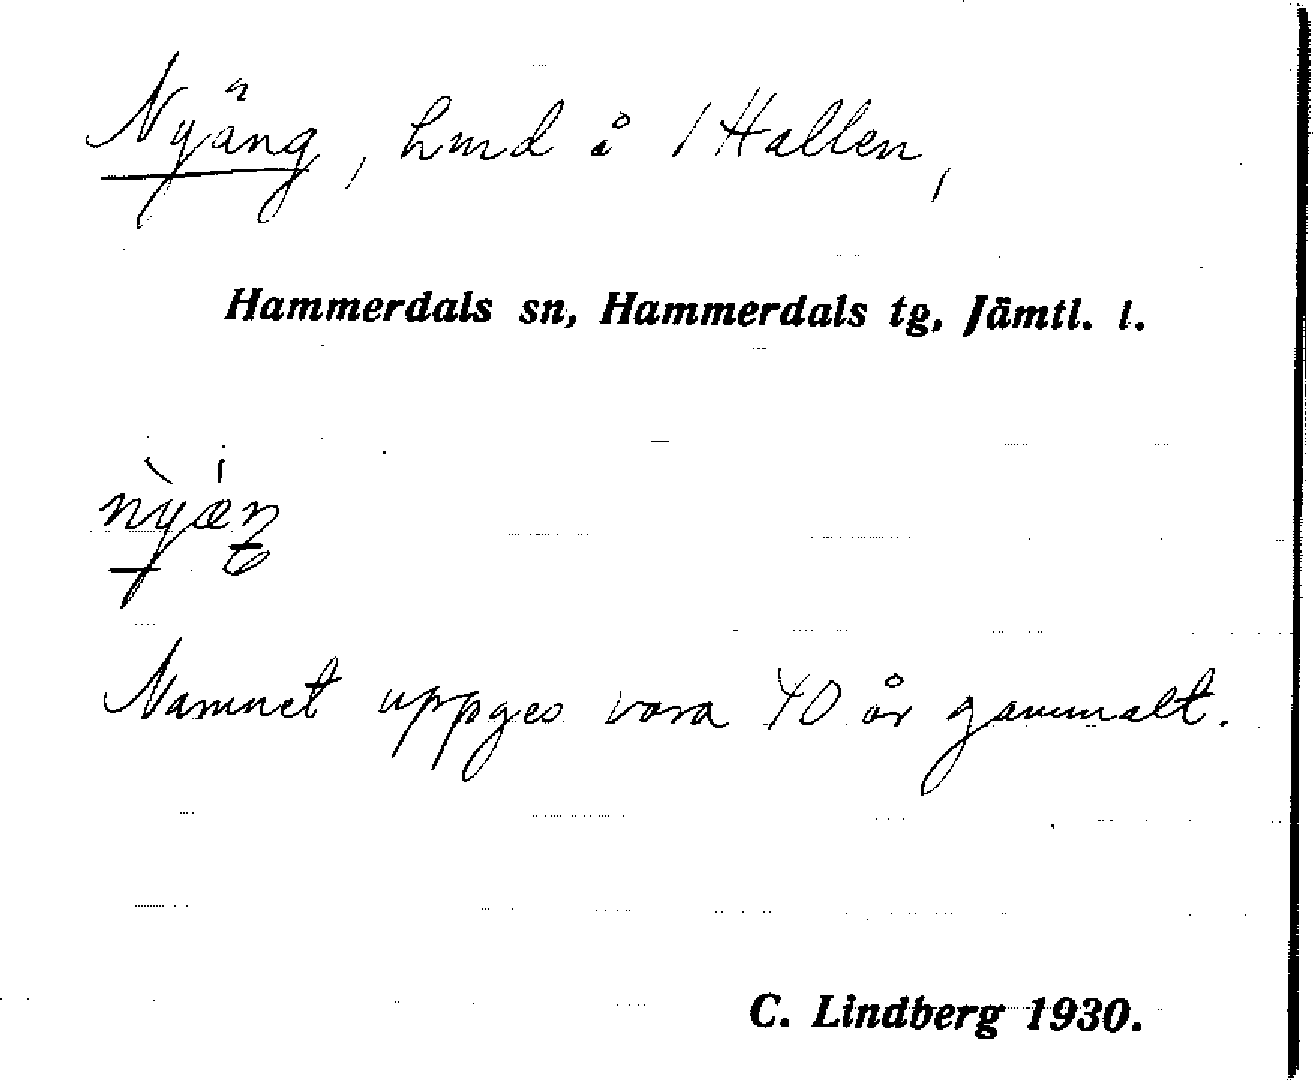 Nyäng, hmd å 1 Hallen,
Hammerdals sn, Hammerdals tg, Jämtl. l.
Namnet uppges vara 40 år gammalt.
C. Lindberg 1930.